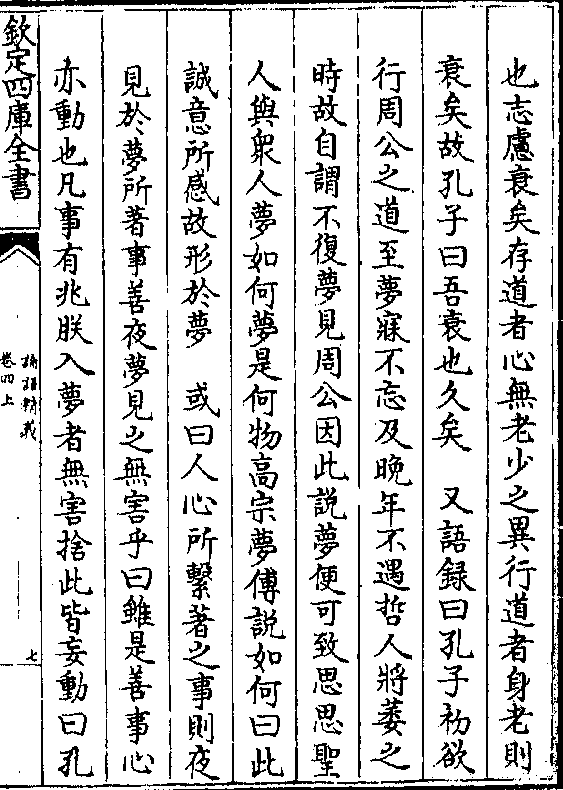 也志慮衰矣存道者心無老少之異行道者身老則
衰矣故孔子曰吾衰也久矣　又語録曰孔子初欲
行周公之道至夢寐不忘及晚年不遇哲人將萎之
時故自謂不復夢見周公因此說夢便可致思思聖
人與衆人夢如何夢是何物高宗夢傅說如何曰此
誠意所感故形於夢　或曰人心所繫著之事則夜
見於夢所著事善夜夢見之無害乎曰雖是善事心
亦動也凡事有兆朕入夢者無害捨此皆妄動曰孔
欽定四庫全書
論語精義
卷四上
七